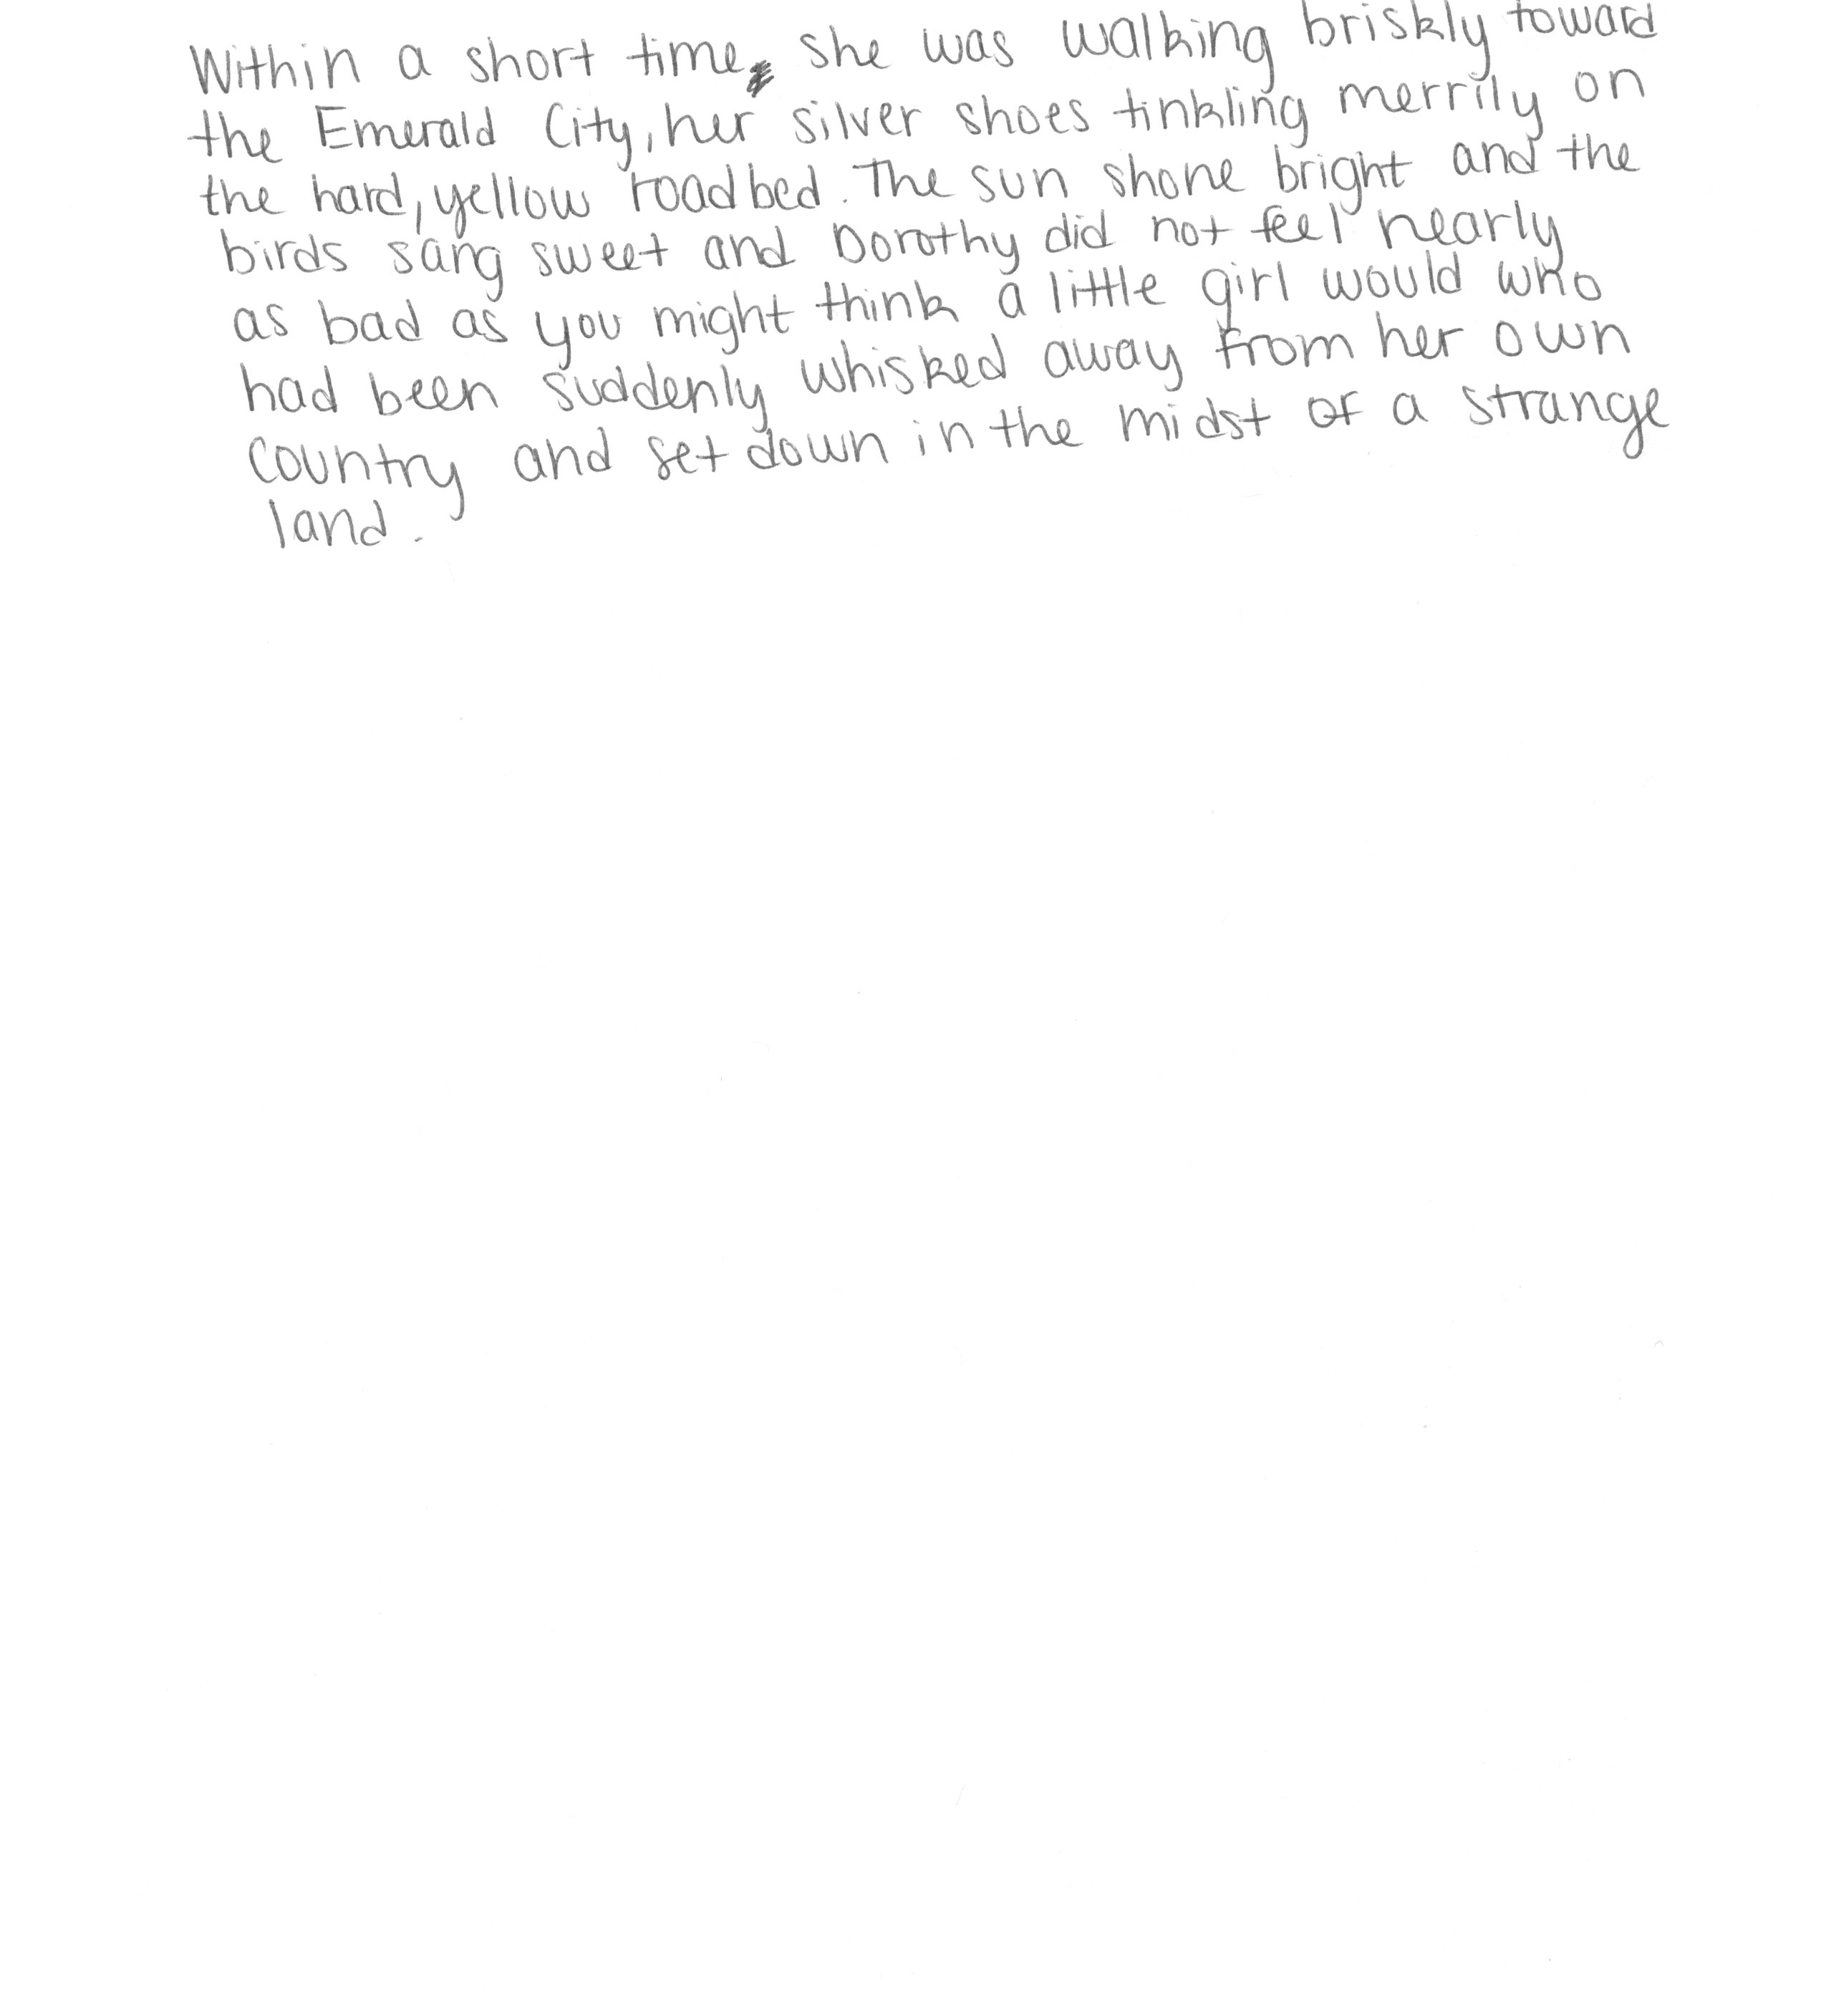 Within a short time she was walking briskly toward
the Emerald City, her silver shoes tinkling merrily on
the hard, yellow roadbed. The sun shone bright and the
birds sang sweet and Dorothy did not feel nearly
as bad as you might think a little girl would who
had been suddenly whisked away from her own
country and set down in the midst of a strange
land.